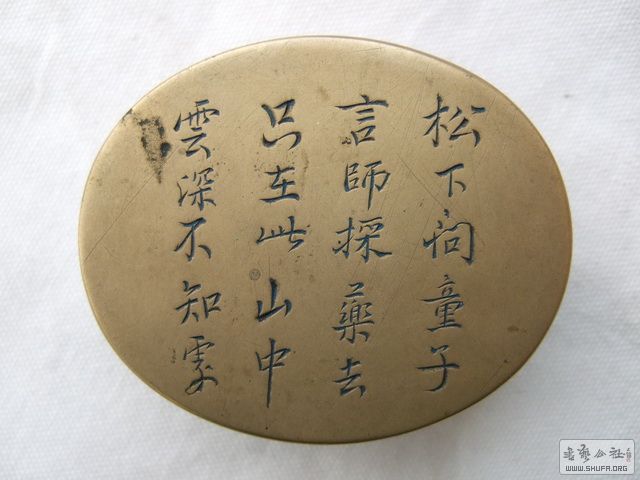 松下问童子
言師採藥去
只在此山中
雲深不知處
書法公社
WWW.SHUFA.ORG